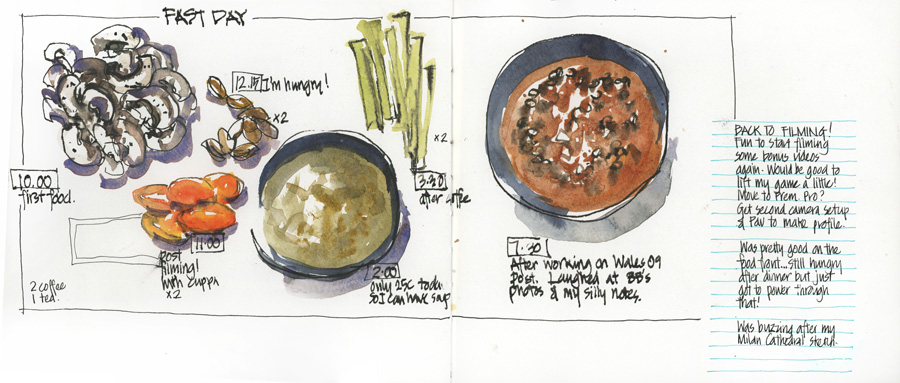 FAST DAY
10.00
first food.
12.15 I'm hungry!
x2
x2
3.30
after coffee
11.00
post
filming!
with cuppa
x2
2 coffee
1 tea.
2.00
only 25C today
so I can have soup
7.30
After working on Wales 09
post. Laughed at BB's
photos & my silly notes.
BACK TO FILMING!
Fun to start filming
some bonus videos
again. Would be good to
lift my game a little!
Move to Prem. Pro?
Get second camera setup
& Pav to make profile.
Was pretty good on the
food front...still hungry
after dinner but just
got to power through
that!
Was buzzing after my
Milan Cathedral sketch.